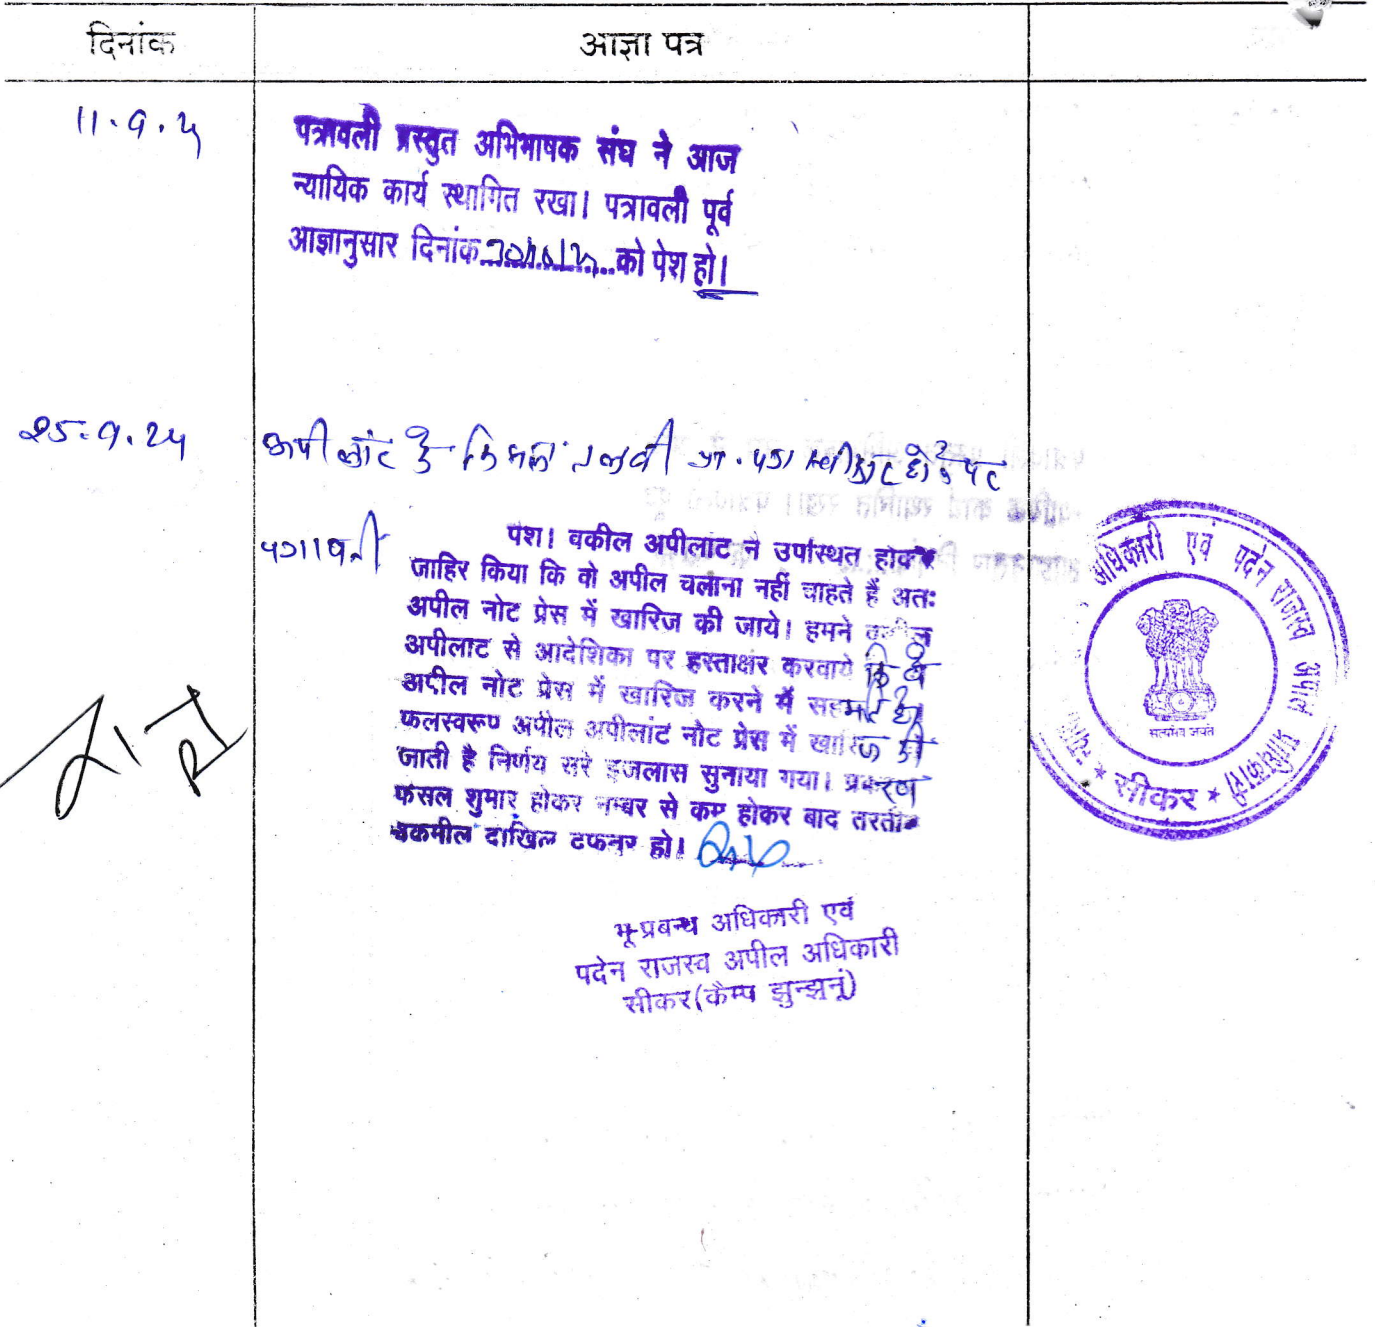 दिनांक
आज्ञा पत्र
11.9.24
पत्रावली प्रस्तुत अभिभाषक संघ ने आज
न्यायिक कार्य स्थागित रखा। पत्रावली पूर्व
आज्ञानुसार दिनांक को पेश हो।
25.9.24
अपीलांट के तलबी प्रा. पत्र स्वीकार होने पर
पत्रावली पेश। वकील अपीलांट ने उपस्थित होकर
जाहिर किया कि वो अपील चलाना नहीं चाहते हैं अतः
अपील नोट प्रेस में खारिज की जाये। हमने वकील
अपीलाट से आदेशिका पर हस्ताक्षर करवाये कि वे
अपील नोट प्रेस में खारिज करने में सहमत है।
फलस्वरूप अपील अपीलांट नोट प्रेस में खारिज की
जाती है निर्णय सरे इजलास सुनाया गया। प्रकरण
फैसल शुमार होकर नम्बर से कम होकर बाद तरतीब
तकमील दाखिल दफ्तर हो।
भू-प्रबन्ध अधिकारी एवं
पदेन राजस्व अपील अधिकारी
सीकर(कैम्प झुन्झुनूं)
अधिकारी एवं पदेन राजस्व अपील अधिकारी
सत्यमेव जयते
★ सीकर ★